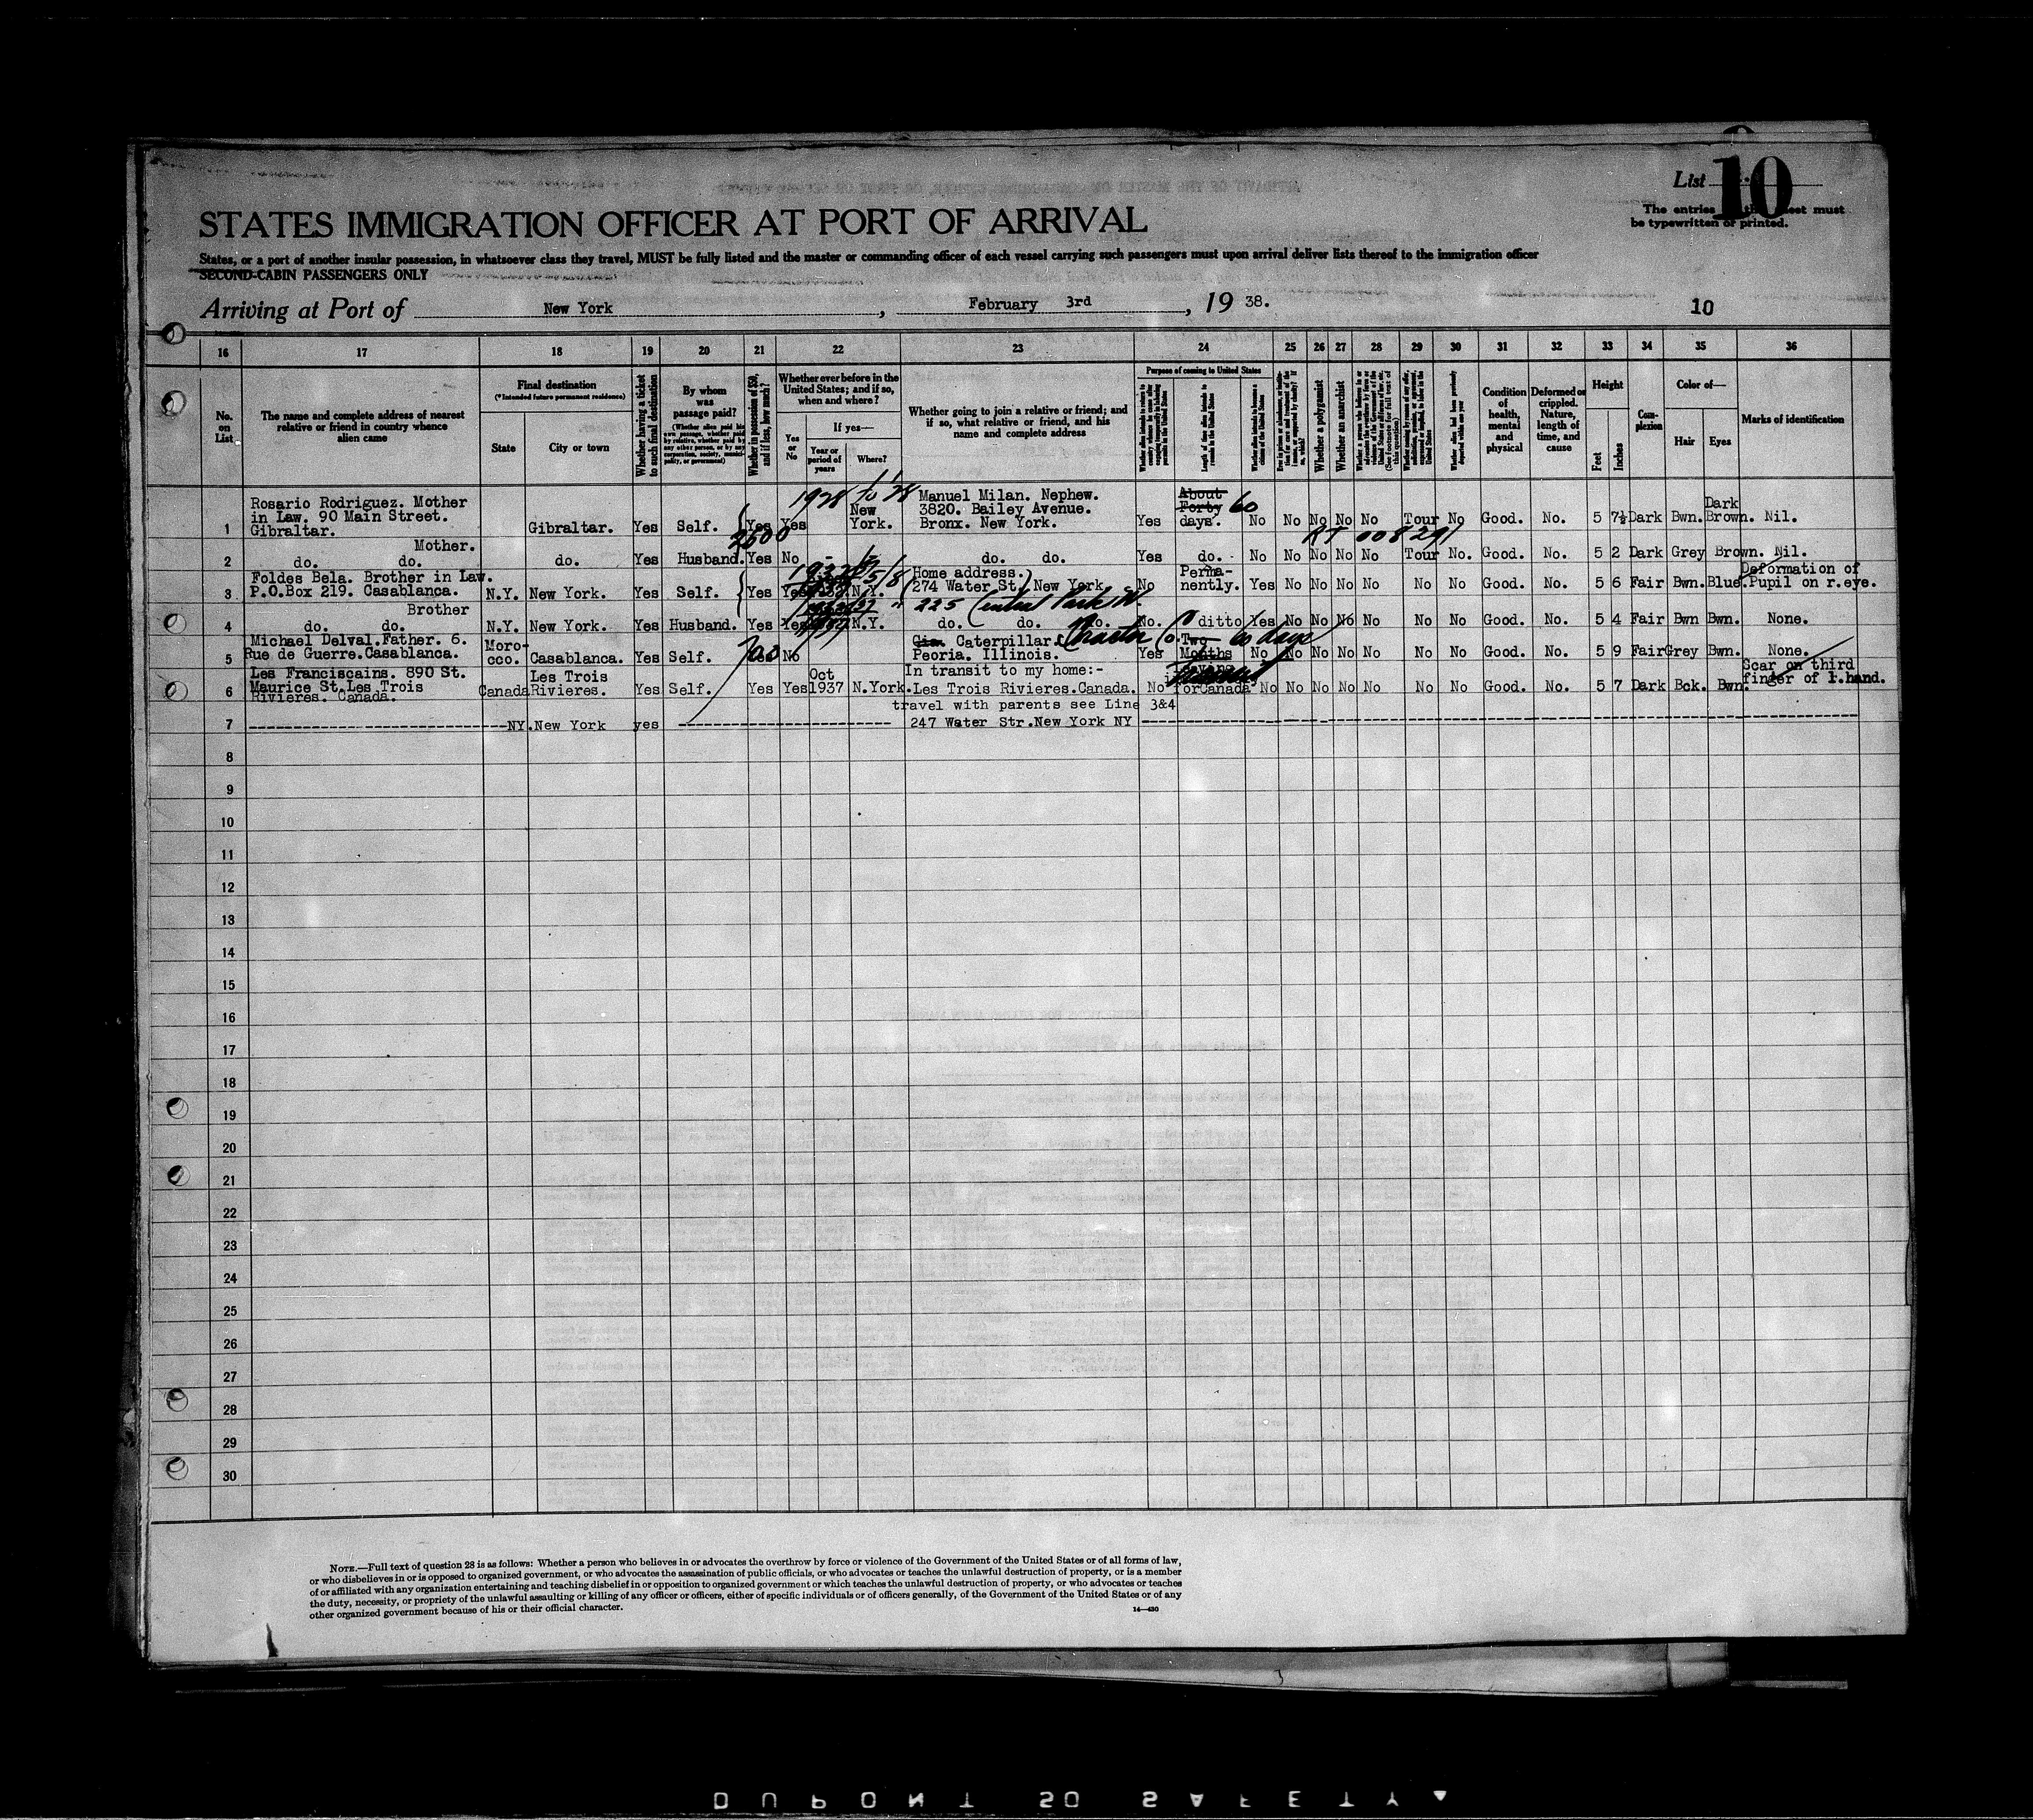 List 10
The entries on this sheet must
be typewritten or printed.
STATES IMMIGRATION OFFICER AT PORT OF ARRIVAL
States, or a port of another insular possession, in whatsoever class they travel, MUST be fully listed and the master or commanding officer of each vessel carrying such passengers must upon arrival deliver lists thereof to the immigration officer
SECOND-CABIN PASSENGERS ONLY
Arriving at Port of New York, February 3rd, 19 38.
10
16 17 18 19 20 21 22 23 24 25 26 27 28 29 30 31 32 33 34 35 36
No. on List
The name and complete address of nearest relative or friend in country whence alien came
Final destination
(*Intended future permanent residence)
State
City or town
Whether having a ticket to such final destination
By whom was passage paid?
Whether in possession of $50, and if less, how much?
Whether ever before in the United States; and if so, when and where?
Yes or No
If yes—
Year or period of years
Where?
Whether going to join a relative or friend; and if so, what relative or friend, and his name and complete address
Purpose of coming to United States
Length of time alien intends to remain in the United States
Whether a polygamist
Whether an anarchist
Condition of health, mental and physical
Deformed or crippled. Nature, length of time, and cause
Height
Feet
Inches
Complexion
Color of—
Hair
Eyes
Marks of identification
1928 to 28
Rosario Rodriguez. Mother
in Law. 90 Main Street.
Gibraltar.
1 Gibraltar. Yes Self. Yes Yes New York. Manuel Milan. Nephew. 3820. Bailey Avenue. Bronx. New York. Yes About Forty 60 days. No No No No No Tour No Good. No. 5 7½ Dark Bwn. Dark Brown. Nil.
2600
RT 008291
Mother.
2 do. do. do. Yes Husband. Yes No - - do. do. Yes do. No No No No No Tour No. Good. No. 5 2 Dark Grey Brown. Nil.
Foldes Bela. Brother in Law.
P.O.Box 219. Casablanca.
3 N.Y. New York. Yes Self. Yes Yes N.Y. Home address. 274 Water St. New York No Permanently. Yes No No No No No No Good. No. 5 6 Fair Bwn. Blue. Deformation of Pupil on r.eye.
225 Central Park W.
Brother
4 do. do. N.Y. New York. Yes Husband. Yes Yes N.Y. do. do. do. No. ditto Yes No No No No No No Good. No. 5 4 Fair Bwn Bwn. None.
Michael Delval.Father. 6.
Rue de Guerre.Casablanca.
5 Morocco. Casablanca. Yes Self. 700 No Cie. Caterpillar Tractor Co. Peoria. Illinois. Yes Two Months 60 days No No No No No No No Good. No. 5 9 Fair Grey Bwn. None.
Les Franciscains. 890 St.
Maurice St.Les Trois
Rivieres. Canada.
6 Canada Les Trois Rivieres. Yes Self. Yes Yes Oct 1937 N.York. In transit to my home:- Les Trois Rivieres.Canada. No leaving for Canada No No No No No No No Good. No. 5 7 Dark Bck. Bwn. Scar on third finger of r.hand.
travel with parents see Line 3&4
7 NY. New York yes 247 Water Str.New York NY
8
9
10
11
12
13
14
15
16
17
18
19
20
21
22
23
24
25
26
27
28
29
30
NOTE.—Full text of question 28 is as follows: Whether a person who believes in or advocates the overthrow by force or violence of the Government of the United States or of all forms of law,
or who disbelieves in or is opposed to organized government, or who advocates the assassination of public officials, or who advocates or teaches the unlawful destruction of property, or is a member
of or affiliated with any organization entertaining and teaching disbelief in or opposition to organized government or which teaches the unlawful destruction of property, or who advocates or teaches
the duty, necessity, or propriety of the unlawful assaulting or killing of any officer or officers, either of specific individuals or of officers generally, of the Government of the United States or of any
other organized government because of his or their official character.
14—430
DUPONT SO SAFETY